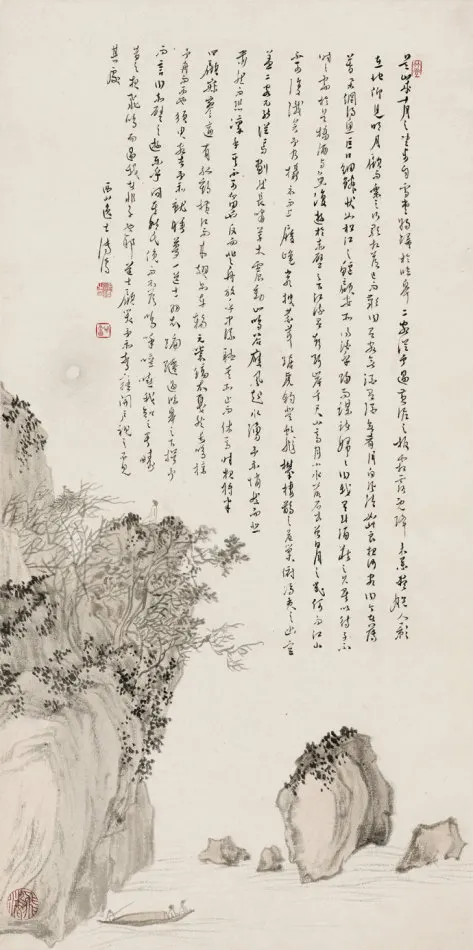 是歲十月之望步自雪堂將歸於臨皋二客從予過黃泥之坂霜露既降木葉盡脫人影
在地仰見明月顧而樂之行歌相答已而歎曰有客無酒有酒無肴月白風清如此良夜何客曰今者薄
暮舉網得魚巨口細鱗狀似松江之鱸顧安所得酒乎歸而謀諸婦婦曰我有斗酒藏之久矣以待子不
時之需於是攜酒與魚復遊於赤壁之下江流有聲斷岸千尺山高月小水落石出曾日月之幾何而江山
不可復識矣予乃攝衣而上履巉巖披蒙茸踞虎豹登虬龍攀棲鶻之危巢俯馮夷之幽宮
蓋二客不能從焉劃然長嘯草木震動山鳴谷應風起水涌予亦悄然而悲
肅然而恐凜乎其不可留也反而登舟放乎中流聽其所止而休焉時夜將半
四顧寂寥適有孤鶴橫江東來翅如車輪玄裳縞衣戛然長鳴掠
予舟而西也須臾客去予亦就睡夢一道士羽衣蹁躚過臨皋之下揖予
而言曰赤壁之遊樂乎問其姓名俛而不答嗚呼噫嘻我知之矣疇
昔之夜飛鳴而過我者非子也耶道士顧笑予亦驚寤開戶視之不見
其處
西山逸士溥儒